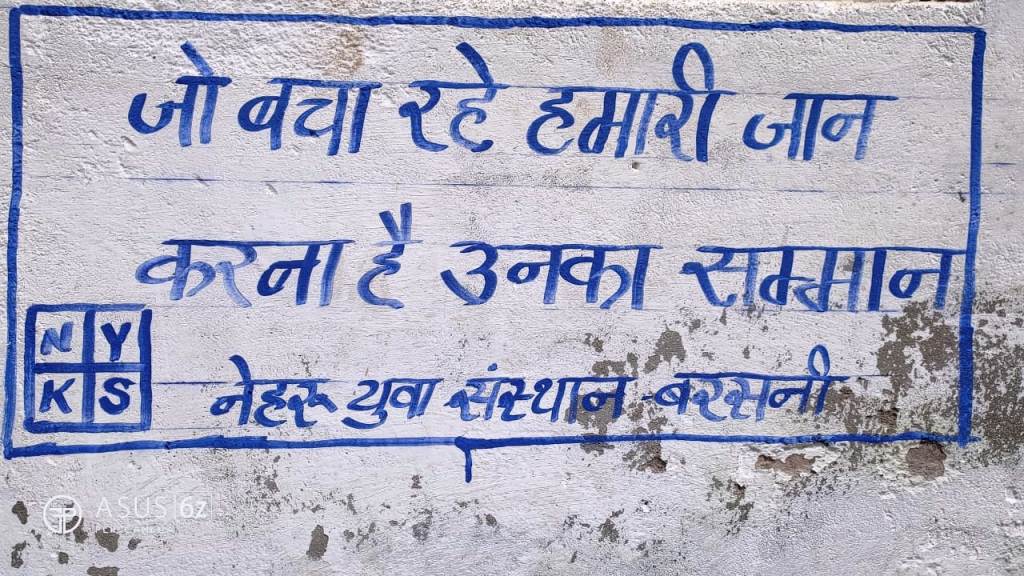 जो बचा रहे हमारी जान
करना है उनका सम्मान
N Y
K S
नेहरू युवा संस्थान - बरसनी
ASUS 6z